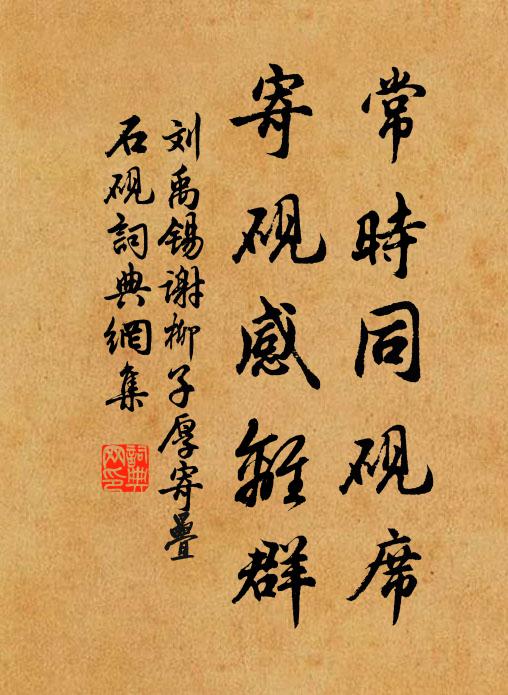 常時同硯席
寄硯感離群
刘禹锡谢柳子厚寄疊
石硯詞典網集
詞典网印